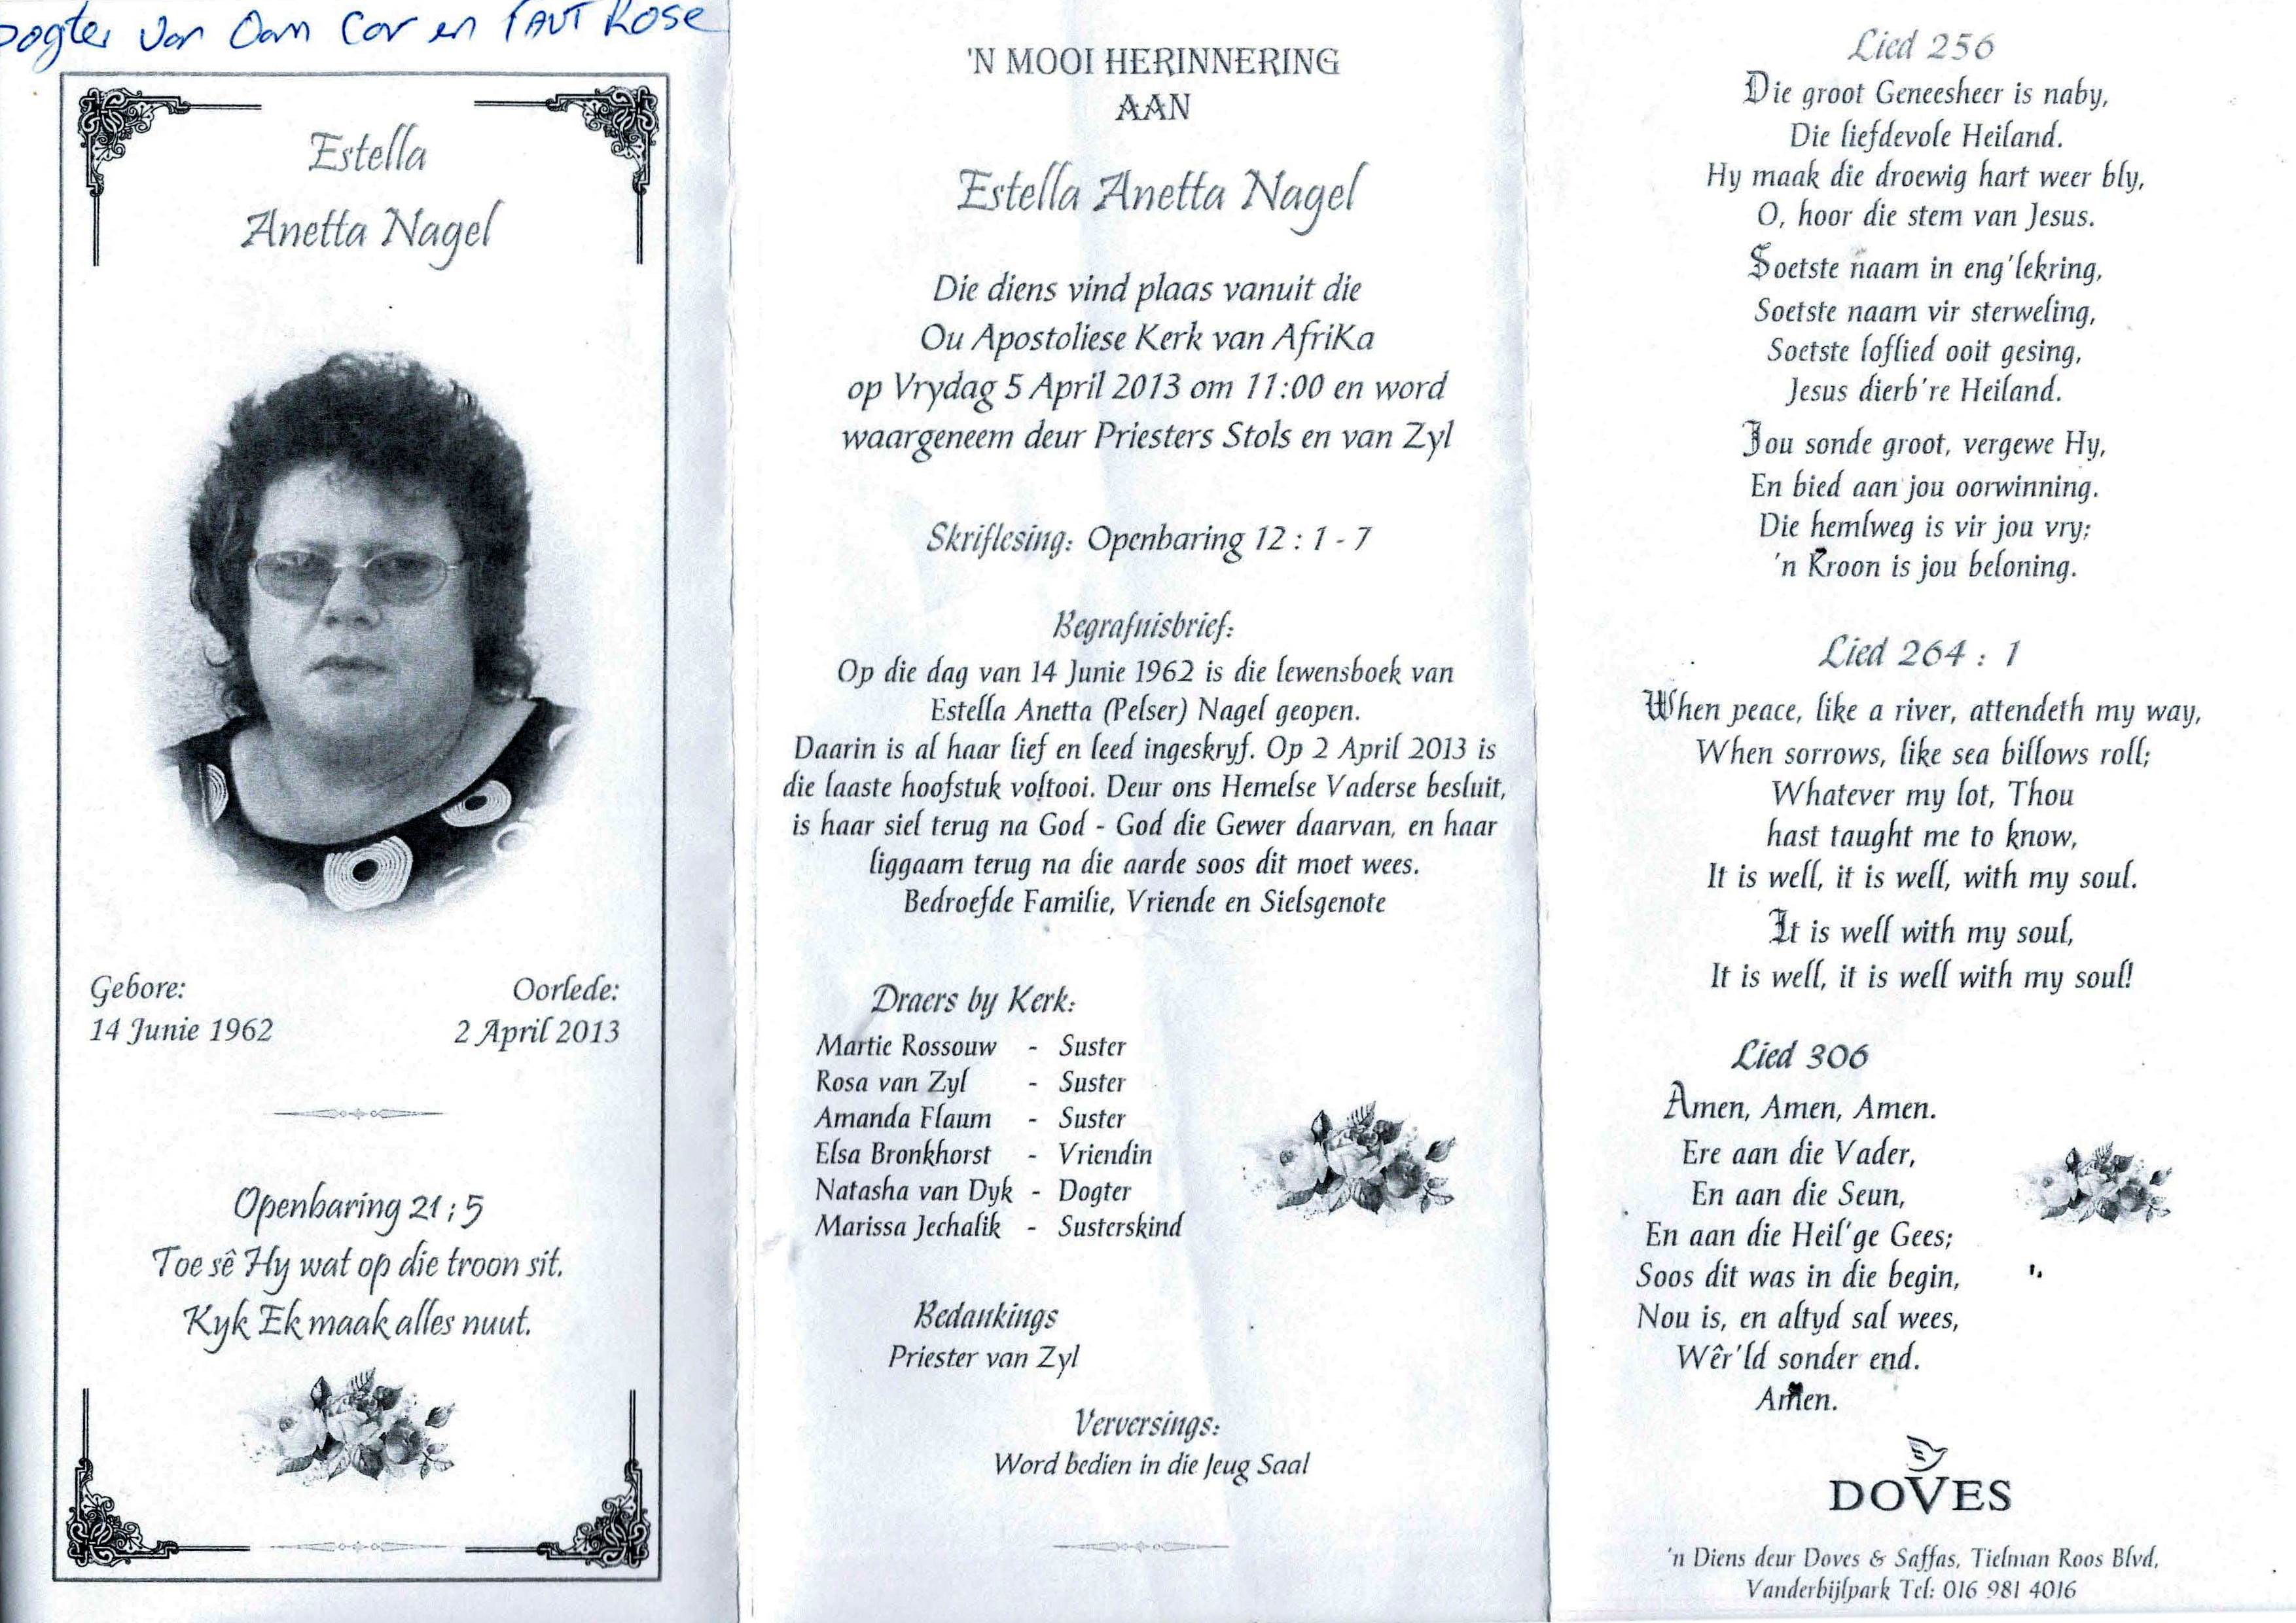 Dogter van Oom Cor en Tant Rose
Estella
Anetta Nagel
Gebore:
14 Junie 1962
Oorlede:
2 April 2013
Openbaring 21 ; 5
Toe sê Hy wat op die troon sit.
Kyk Ek maak alles nuut.
'N MOOI HERINNERING
AAN
Estella Anetta Nagel
Die diens vind plaas vanuit die
Ou Apostoliese Kerk van AfriKa
op Vrydag 5 April 2013 om 11:00 en word
waargeneem deur Priesters Stols en van Zyl
Skriflesing: Openbaring 12 : 1 - 7
Begrafnisbrief:
Op die dag van 14 Junie 1962 is die lewensboek van
Estella Anetta (Pelser) Nagel geopen.
Daarin is al haar lief en leed ingeskryf. Op 2 April 2013 is
die laaste hoofstuk voltooi. Deur ons Hemelse Vaderse besluit,
is haar siel terug na God - God die Gewer daarvan, en haar
liggaam terug na die aarde soos dit moet wees.
Bedroefde Familie, Vriende en Sielsgenote
Draers by Kerk:
Martie Rossouw - Suster
Rosa van Zyl - Suster
Amanda Flaum - Suster
Elsa Bronkhorst - Vriendin
Natasha van Dyk - Dogter
Marissa Jechalik - Susterskind
Bedankings
Priester van Zyl
Verversings:
Word bedien in die Jeug Saal
Lied 256
Die groot Geneesheer is naby,
Die liefdevole Heiland.
Hy maak die droewig hart weer bly,
O, hoor die stem van Jesus.
Soetste naam in eng'lekring,
Soetste naam vir sterweling,
Soetste loflied ooit gesing,
Jesus dierb're Heiland.
Jou sonde groot, vergewe Hy,
En bied aan jou oorwinning.
Die hemlweg is vir jou vry;
'n Kroon is jou beloning.
Lied 264 : 1
When peace, like a river, attendeth my way,
When sorrows, like sea billows roll;
Whatever my lot, Thou
hast taught me to know,
It is well, it is well, with my soul.
It is well with my soul,
It is well, it is well with my soul!
Lied 306
Amen, Amen, Amen.
Ere aan die Vader,
En aan die Seun,
En aan die Heil'ge Gees;
Soos dit was in die begin,
Nou is, en altyd sal wees,
Wêr'ld sonder end.
Amen.
DOVES
'n Diens deur Doves & Saffas, Tielman Roos Blvd,
Vanderbijlpark Tel: 016 981 4016